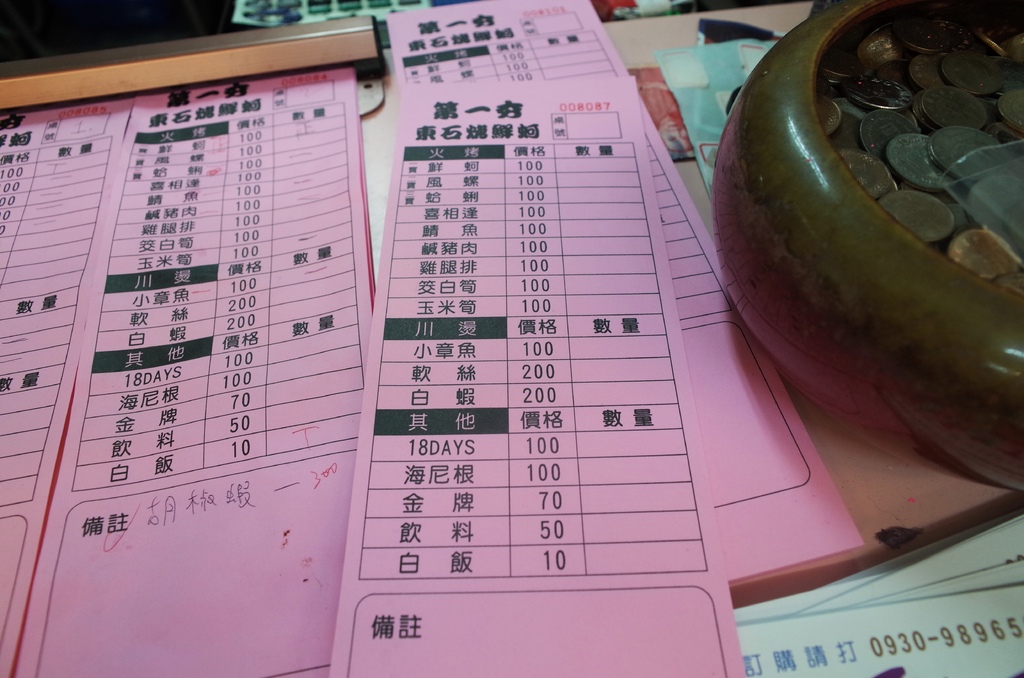 008085
價格 數量
100
100
數量
數量
第一夯
008084
東石烤鮮蚵
編號
火烤 價格 數量
賣 鮮蚵 100
賣 風螺 100
賣 蛤蜊 100
喜相逢 100
鯖魚 100
鹹豬肉 100
雞腿排 100
筊白筍 100
玉米筍 100
川燙 價格 數量
小章魚 100
軟絲 200
白蝦 200
其他 價格 數量
18DAYS 100
海尼根 100
金牌 70
飲料 50
白飯 10
備註 胡椒蝦 一 300
第一夯
008101
東石烤鮮蚵
編號
火烤 價格 數量
賣 鮮蚵 100
賣 風螺 100
第一夯
008087
東石烤鮮蚵
編號
火烤 價格 數量
賣 鮮蚵 100
賣 風螺 100
賣 蛤蜊 100
喜相逢 100
鯖魚 100
鹹豬肉 100
雞腿排 100
筊白筍 100
玉米筍 100
川燙 價格 數量
小章魚 100
軟絲 200
白蝦 200
其他 價格 數量
18DAYS 100
海尼根 100
金牌 70
飲料 50
白飯 10
備註
訂購請打 0930-98965